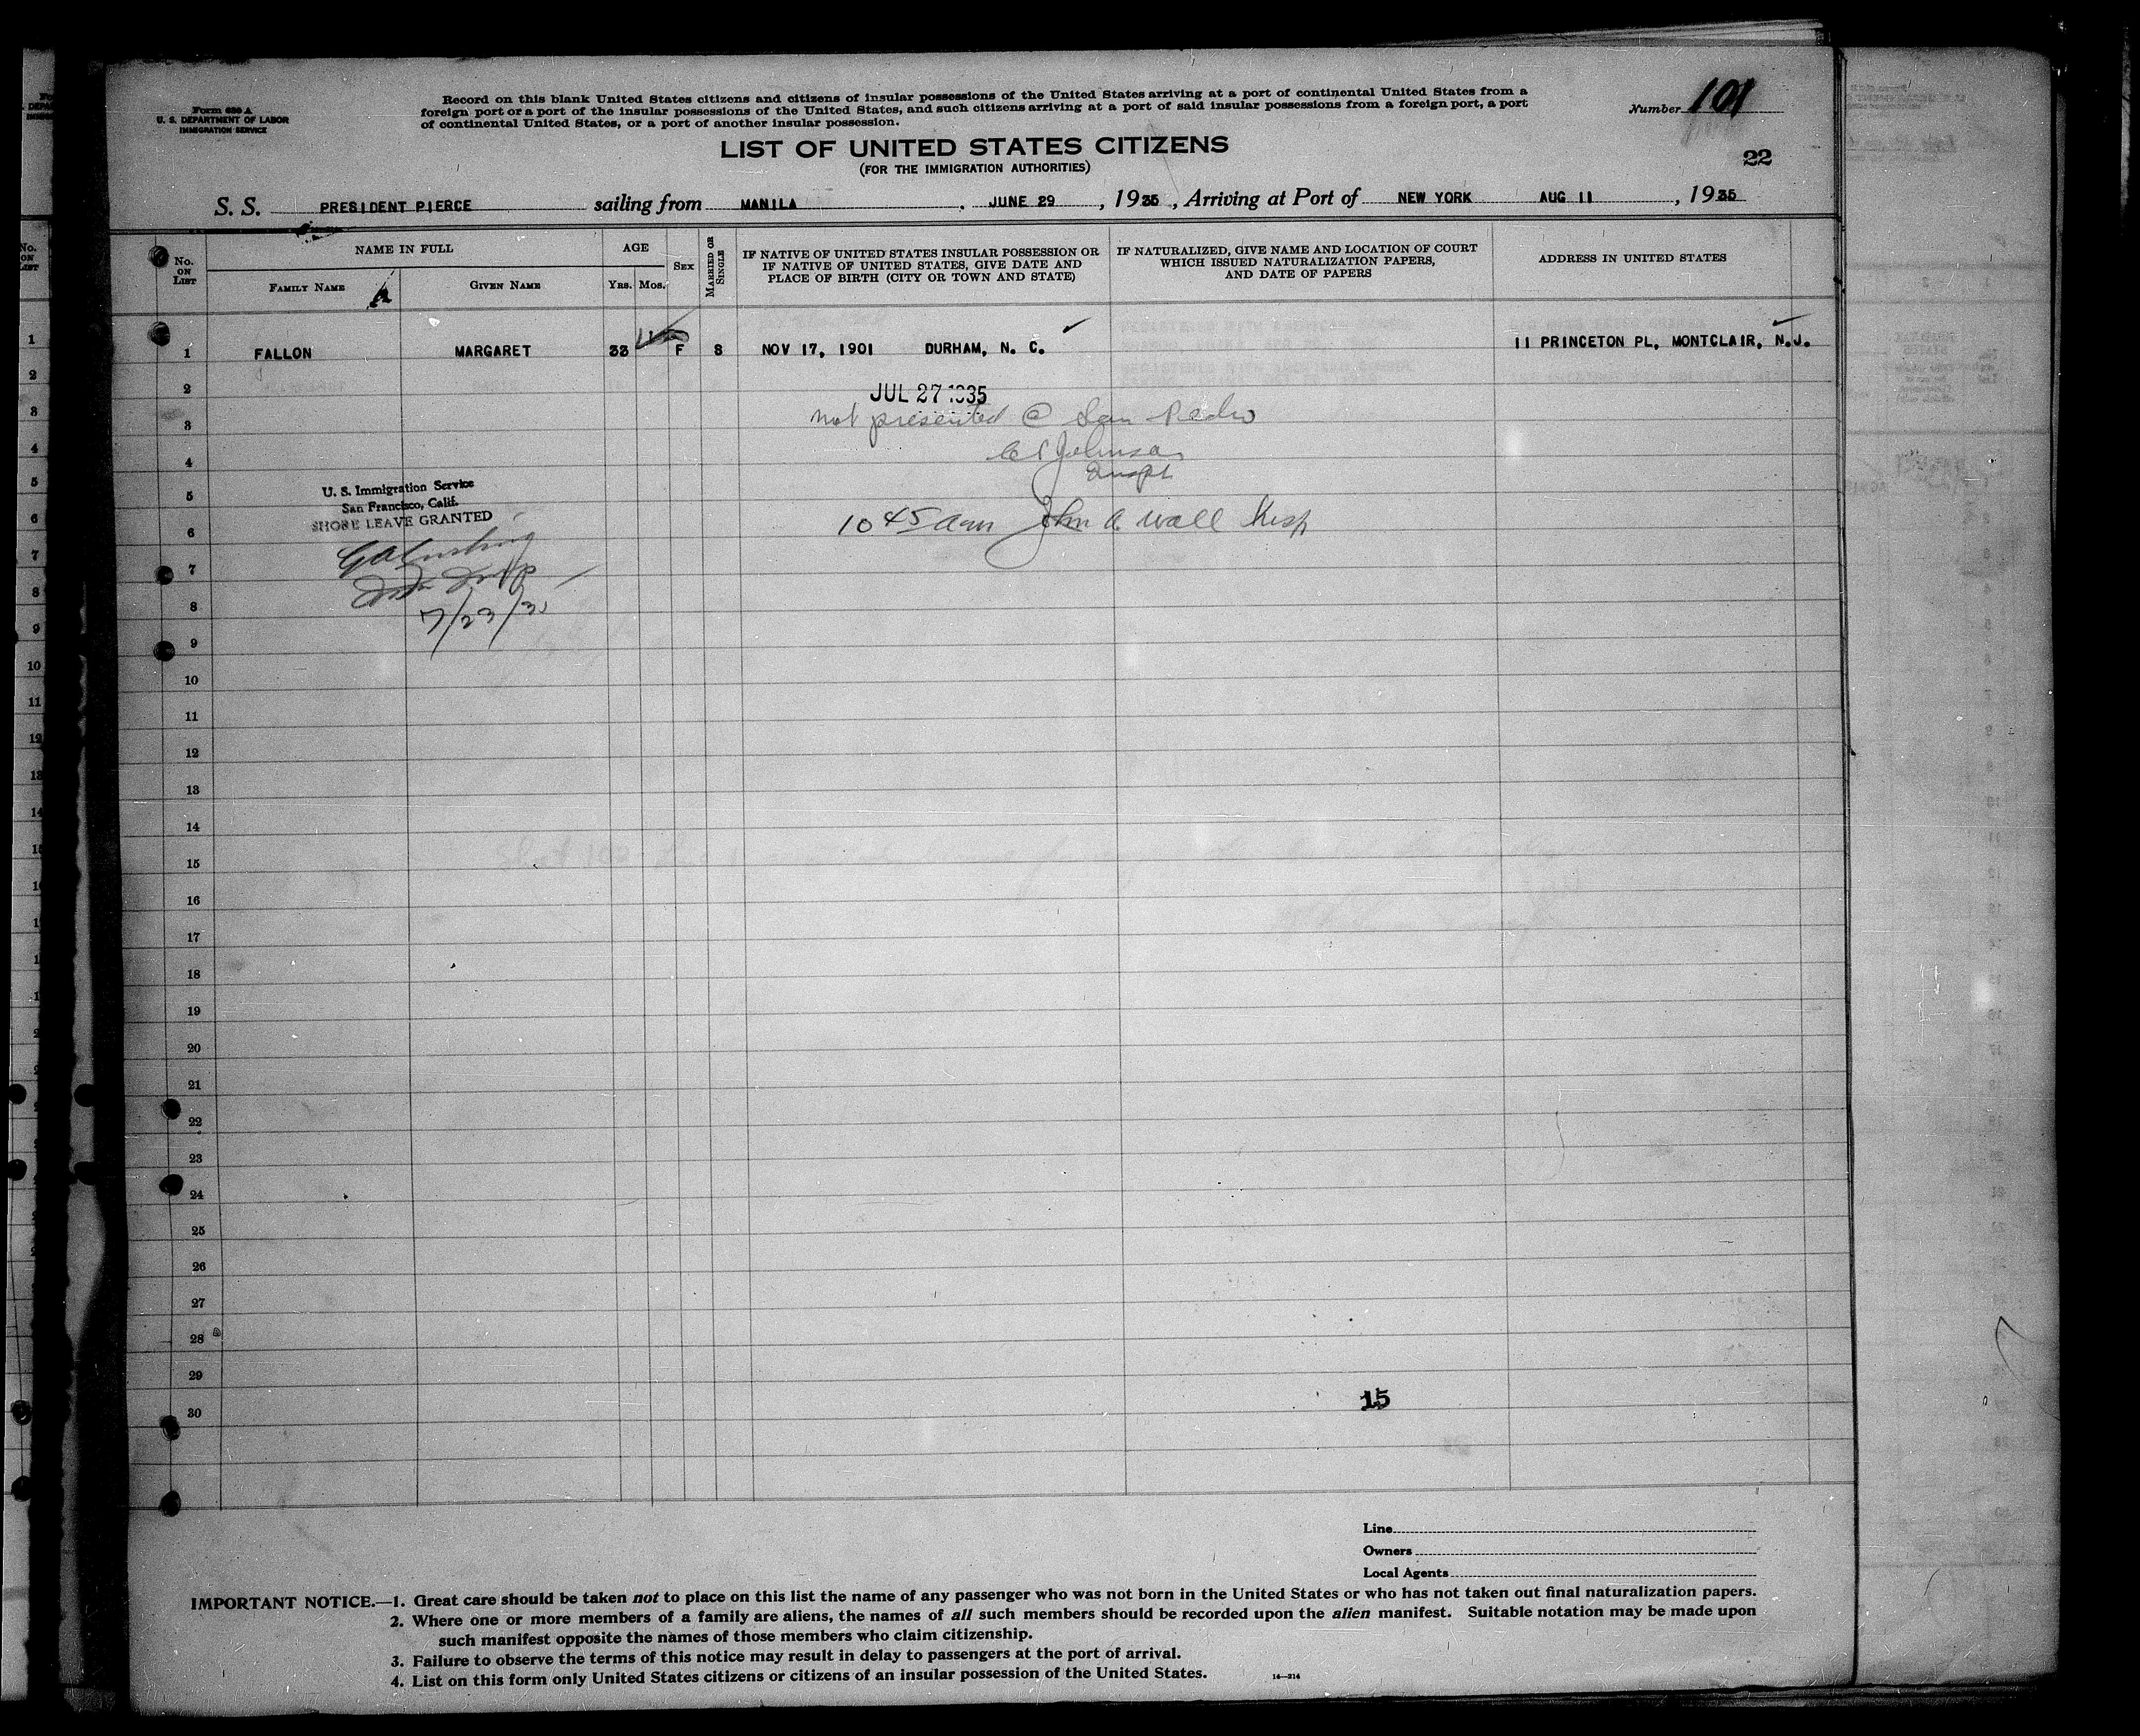 Form 630 A
U. S. DEPARTMENT OF LABOR
IMMIGRATION SERVICE
Record on this blank United States citizens and citizens of insular possessions of the United States arriving at a port of continental United States from a
foreign port or a port of the insular possessions of the United States, and such citizens arriving at a port of said insular possessions from a foreign port, a port
of continental United States, or a port of another insular possession.
Number 101
22
LIST OF UNITED STATES CITIZENS
(FOR THE IMMIGRATION AUTHORITIES)
S. S. PRESIDENT PIERCE sailing from MANILA, JUNE 29, 1935, Arriving at Port of NEW YORK AUG 11, 1935
No. ON LIST
NAME IN FULL
FAMILY NAME
GIVEN NAME
AGE
YRS. MOS.
SEX
MARRIED OR SINGLE
IF NATIVE OF UNITED STATES INSULAR POSSESSION OR
IF NATIVE OF UNITED STATES, GIVE DATE AND
PLACE OF BIRTH (CITY OR TOWN AND STATE)
IF NATURALIZED, GIVE NAME AND LOCATION OF COURT
WHICH ISSUED NATURALIZATION PAPERS,
AND DATE OF PAPERS
ADDRESS IN UNITED STATES
1 FALLON MARGARET 33 F S NOV 17, 1901 DURHAM, N. C. 11 PRINCETON PL, MONTCLAIR, N.J.
2
JUL 27 1935
3
not presented @ San Pedro
4
Johnson
Inspt
5
U. S. Immigration Service
San Francisco, Calif.
SHORE LEAVE GRANTED
6
10 45 am John A. Wall Insp
7
8
7/23/35
9
10
11
12
13
14
15
16
17
18
19
20
21
22
23
24
25
26
27
28
29
30
15
Line
Owners
Local Agents
IMPORTANT NOTICE.—1. Great care should be taken not to place on this list the name of any passenger who was not born in the United States or who has not taken out final naturalization papers.
2. Where one or more members of a family are aliens, the names of all such members should be recorded upon the alien manifest. Suitable notation may be made upon
such manifest opposite the names of those members who claim citizenship.
3. Failure to observe the terms of this notice may result in delay to passengers at the port of arrival.
4. List on this form only United States citizens or citizens of an insular possession of the United States.
14—214